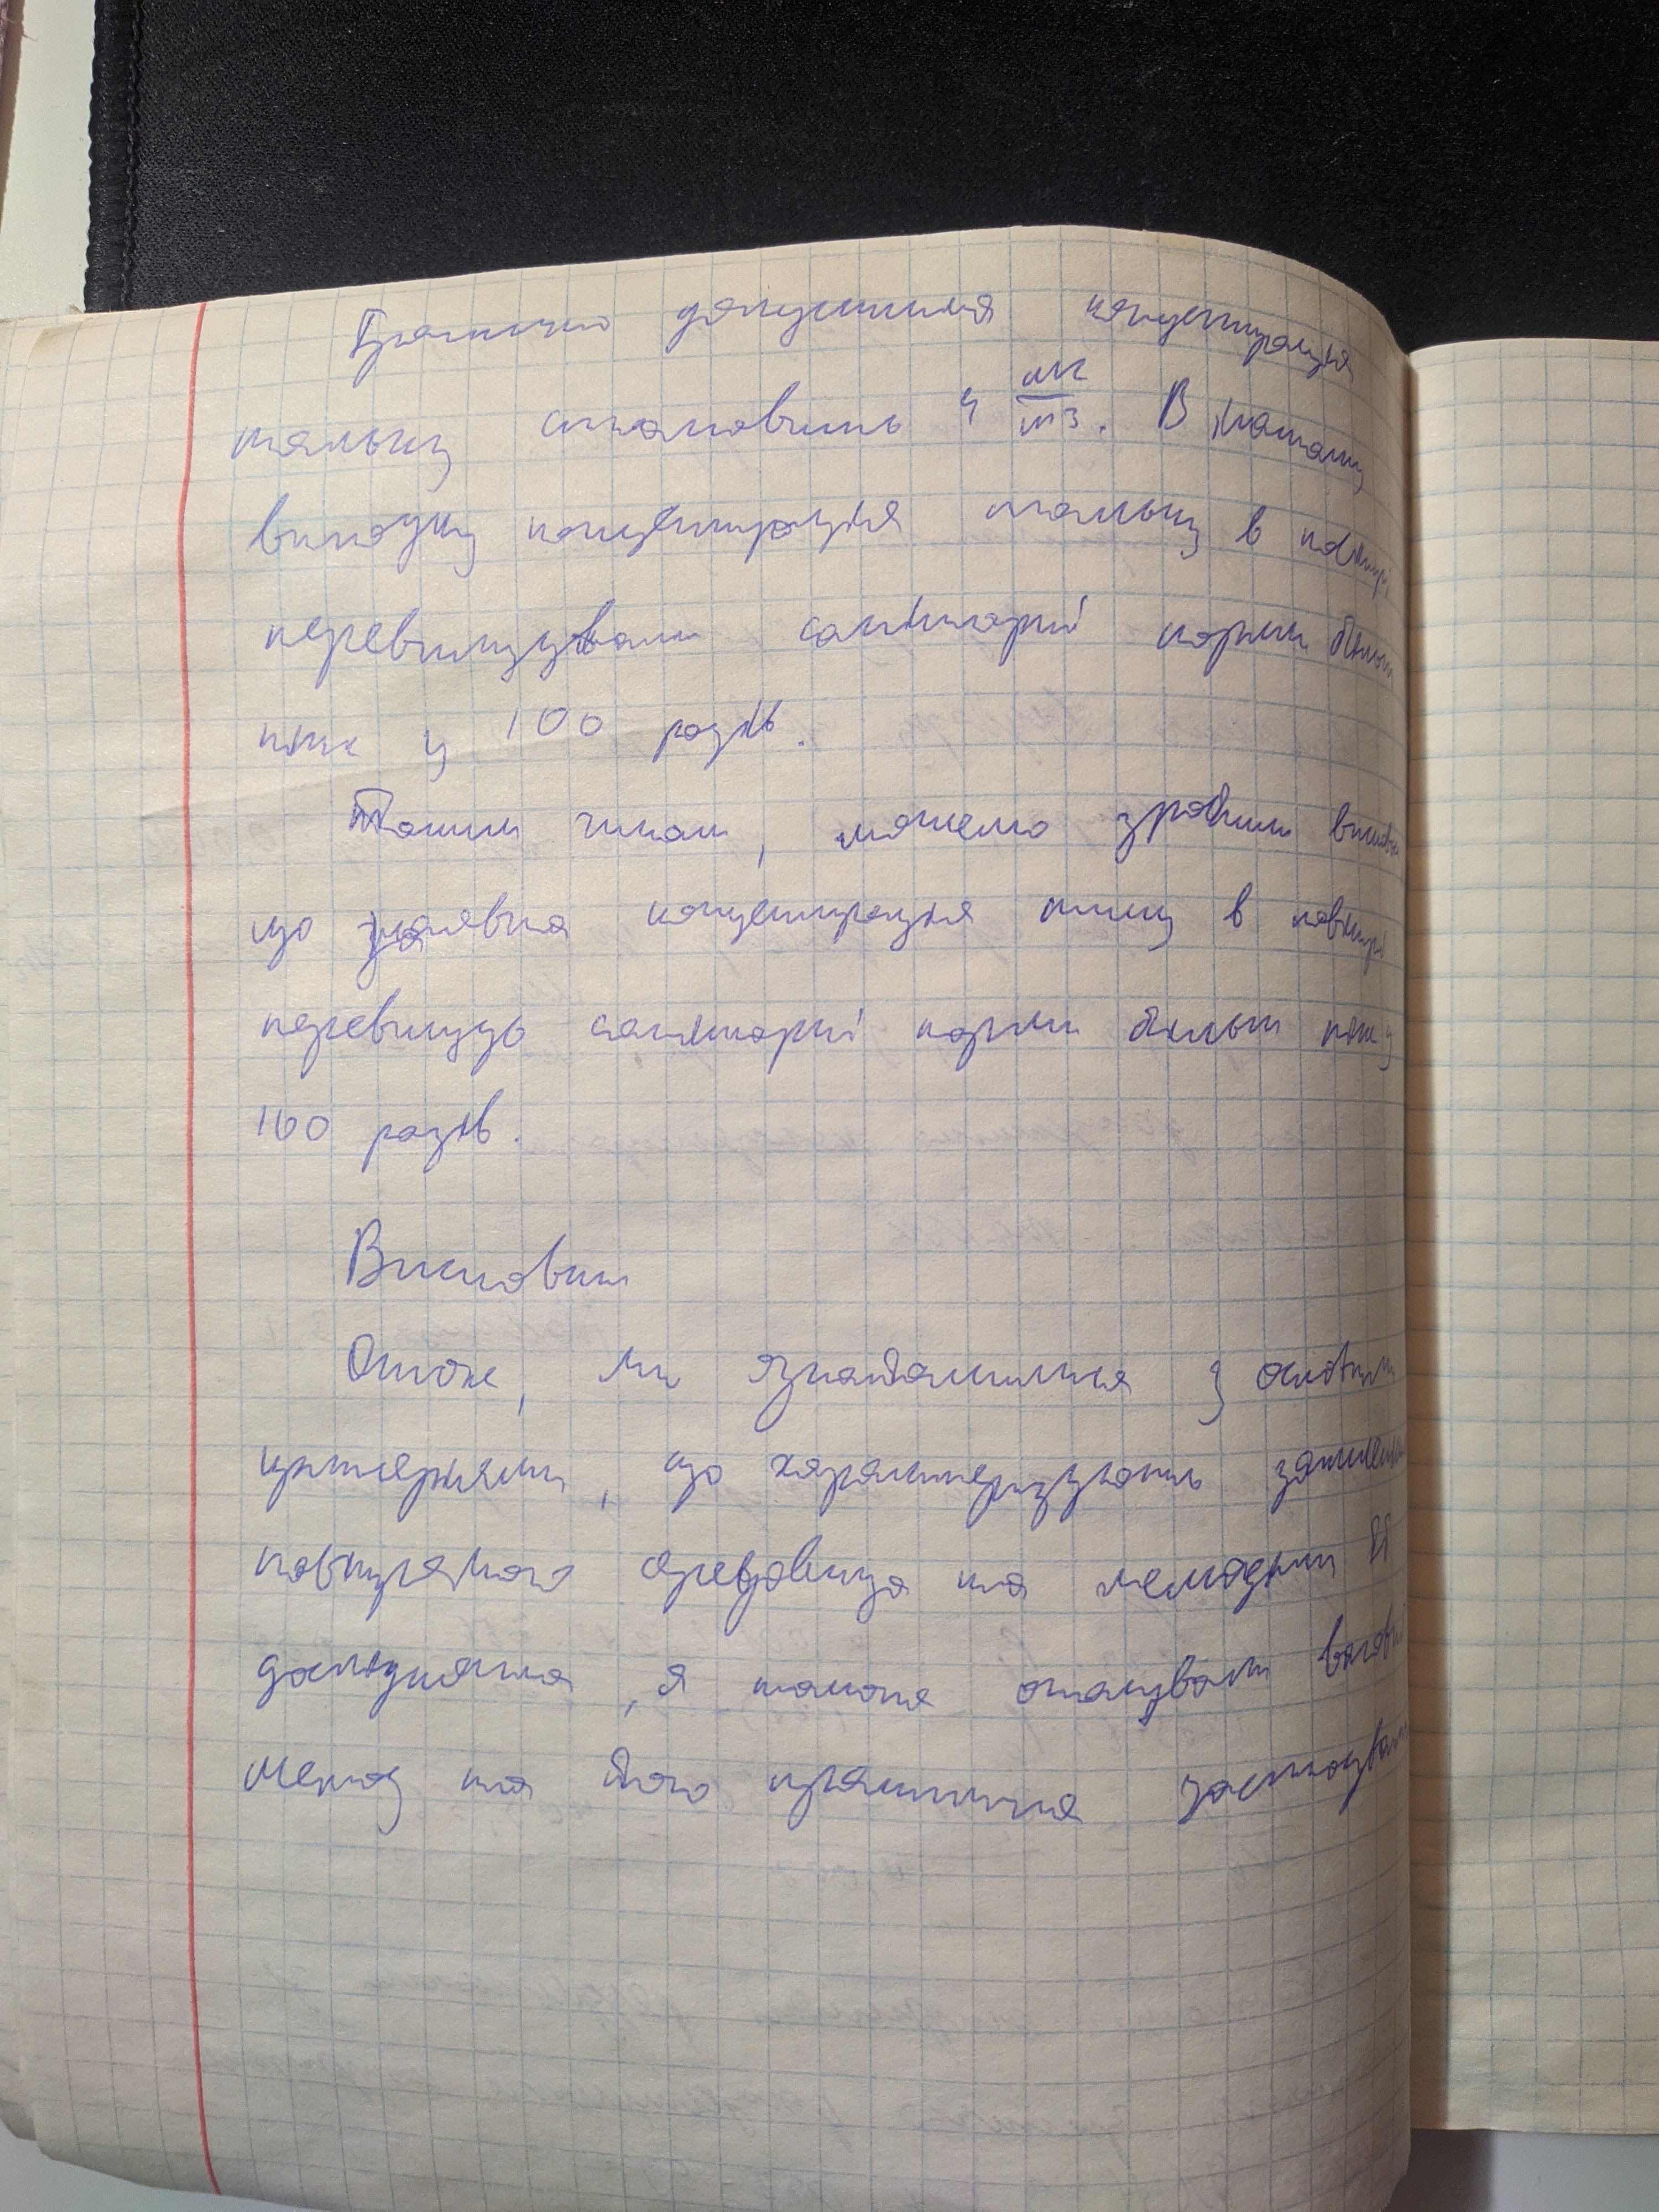 Гранично допустима концентрація
тальку становить 4 мг/м3. В нашому
випадку концентрація тальку в повітрі
перевищувала санітарні норми більш
ніж у 100 разів.
Таким чином, можемо зробити висновки
що наявна концентрація пилу в повітрі
перевищує санітарні норми більш ніж у
100 разів.
Висновки
Отже, ми ознайомилися з основними
критеріями, що характеризують запилення
повітряного середовища та методами її
дослідження, а також опанували ваговий
метод та його практичне застосування